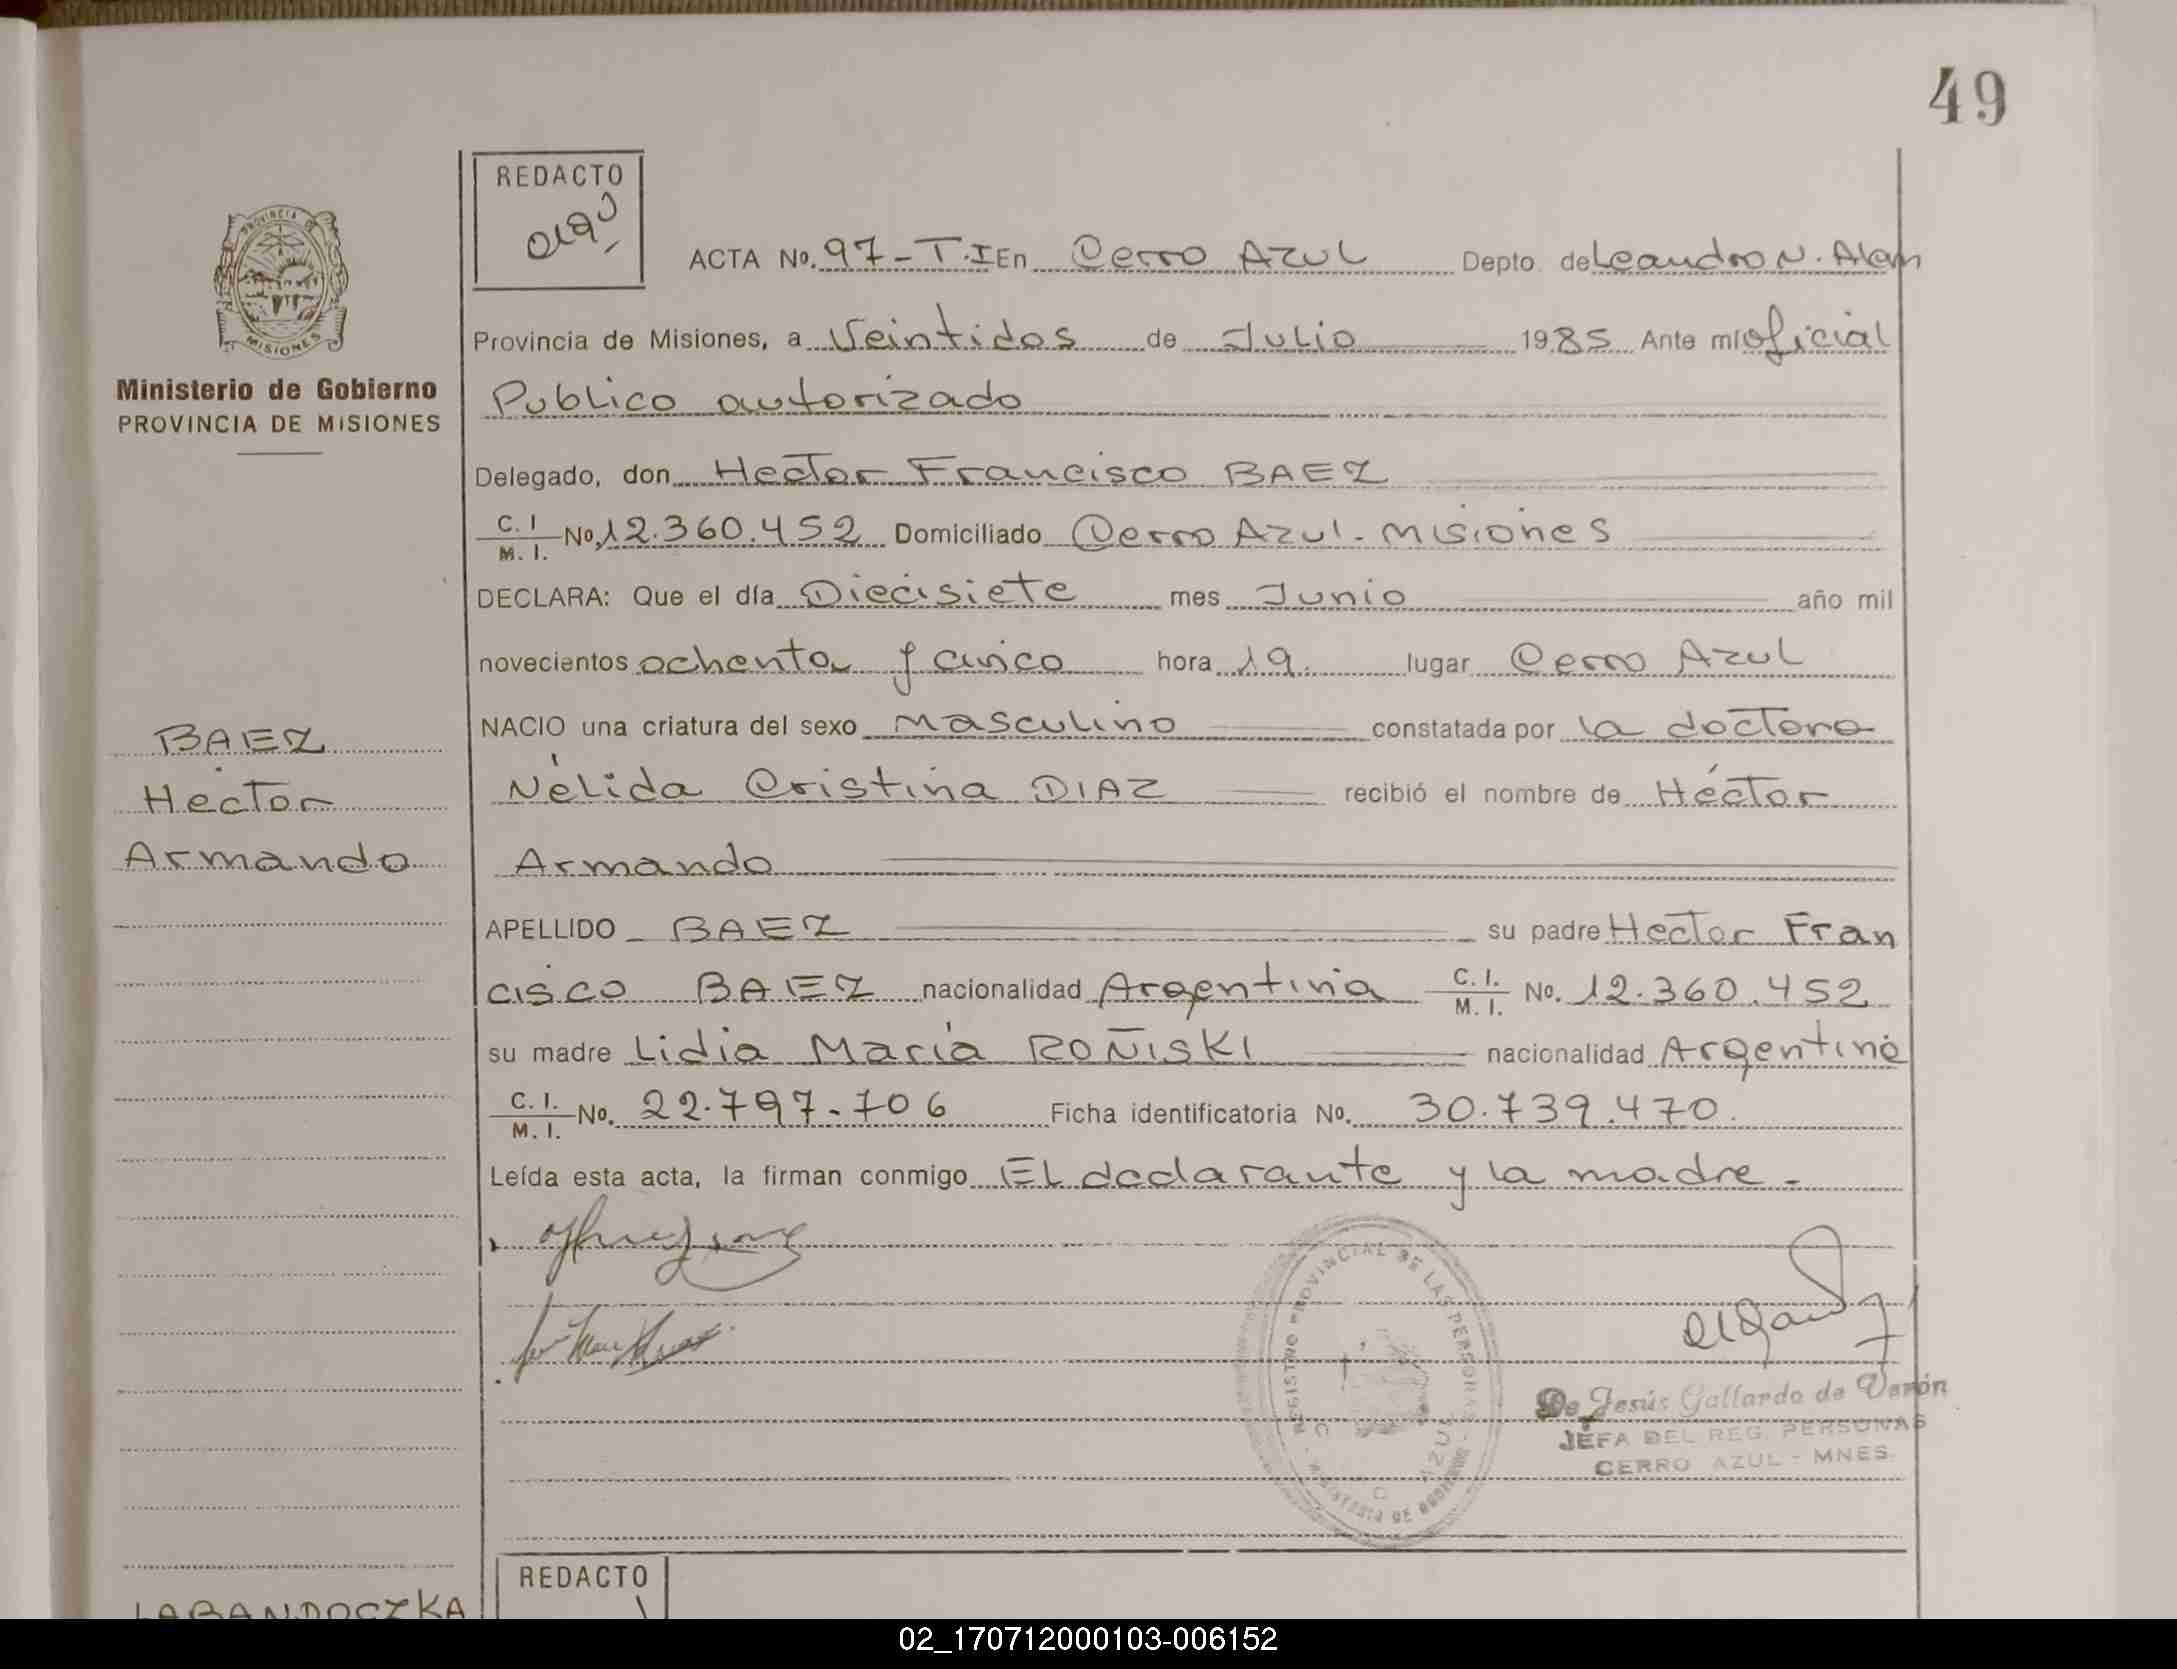 49
REDACTO
ACTA No. 97-T.I En Cerro Azul Depto. de Leandro N. Alem
PROVINCIA DE MISIONES
Provincia de Misiones, a Veintidos de Julio 1985 Ante mí oficial
Ministerio de Gobierno
PROVINCIA DE MISIONES
Publico autorizado
Delegado, don Hector Francisco BAEZ
C. I. M. I. No. 12.360.452 Domiciliado Cerro Azul - Misiones
DECLARA: Que el día Diecisiete mes Junio año mil
novecientos ochenta y cinco hora 19. lugar Cerro Azul
BAEZ
Hector
Armando
NACIO una criatura del sexo masculino constatada por la doctora
Nélida Cristina DIAZ recibió el nombre de Héctor
Armando
APELLIDO BAEZ su padre Hector Fran
cisco BAEZ nacionalidad Argentina C. I. M. I. No. 12.360.452
su madre Lidia María ROÑISKI nacionalidad Argentina
C. I. M. I. No. 22.797.706 Ficha identificatoria No. 30.739.470.
Leída esta acta, la firman conmigo El declarante y la madre.-
REGISTRO PROVINCIAL DE LAS PERSONAS
De Jesús Gallardo de Verón
JEFA DEL REG. PERSONAS
CERRO AZUL - MNES.
REDACTO
LABANDOCZKA
02_170712000103-006152